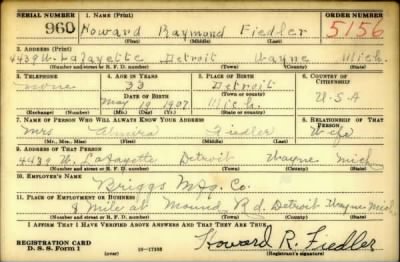 SERIAL NUMBER 1. NAME (Print) ORDER NUMBER
960 Howard Raymond Fiedler 5156
(First) (Middle) (Last)
2. ADDRESS (Print)
4439 W. Lafayette Detroit Wayne Mich.
(Number and street or R. F. D. number) (Town) (County) (State)
3. TELEPHONE 4. AGE IN YEARS 5. PLACE OF BIRTH 6. COUNTRY OF CITIZENSHIP
none 33 Detroit
DATE OF BIRTH (Town or county)
May 19 1907 Mich. U.S.A
(Exchange) (Number) (Mo.) (Day) (Yr.) (State or country)
7. NAME OF PERSON WHO WILL ALWAYS KNOW YOUR ADDRESS 8. RELATIONSHIP OF THAT PERSON
Mrs Elmira Fiedler Wife
(Mr., Mrs., Miss) (First) (Middle) (Last)
9. ADDRESS OF THAT PERSON
4439 W. Lafayette Detroit Wayne Mich
(Number and street or R. F. D. number) (Town) (County) (State)
10. EMPLOYER'S NAME
Briggs Mfg. Co.
11. PLACE OF EMPLOYMENT OR BUSINESS
8 Mile at Mound Rd. Detroit Wayne Mich.
(Number and street or R. F. D. number) (Town) (County) (State)
I AFFIRM THAT I HAVE VERIFIED ABOVE ANSWERS AND THAT THEY ARE TRUE.
REGISTRATION CARD
D. S. S. Form 1 16-17105 Howard R. Fiedler
(Registrant's signature)